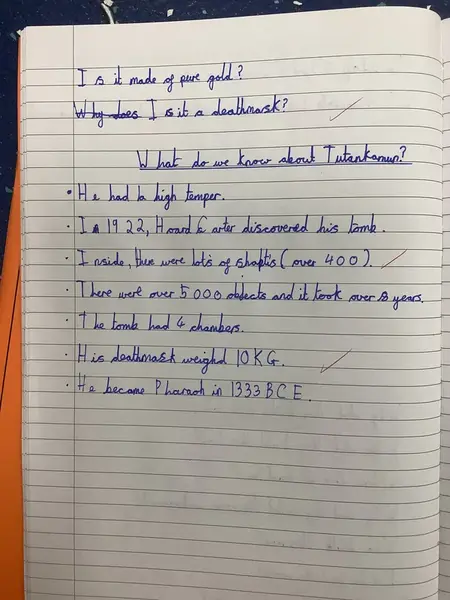 Is it made of pure gold?
Why does Is it a deathmask?
What do we know about Tutankamun?
• He had a high temper.
• In 1922, Hoard Carter discovered his tomb.
• Inside, there were lots of shaptis (over 400).
• There were over 5000 objects and it took over 8 years.
• The tomb had 4 chambers.
• His deathmask weighd 10KG.
• He became Pharaoh in 1333 BCE.